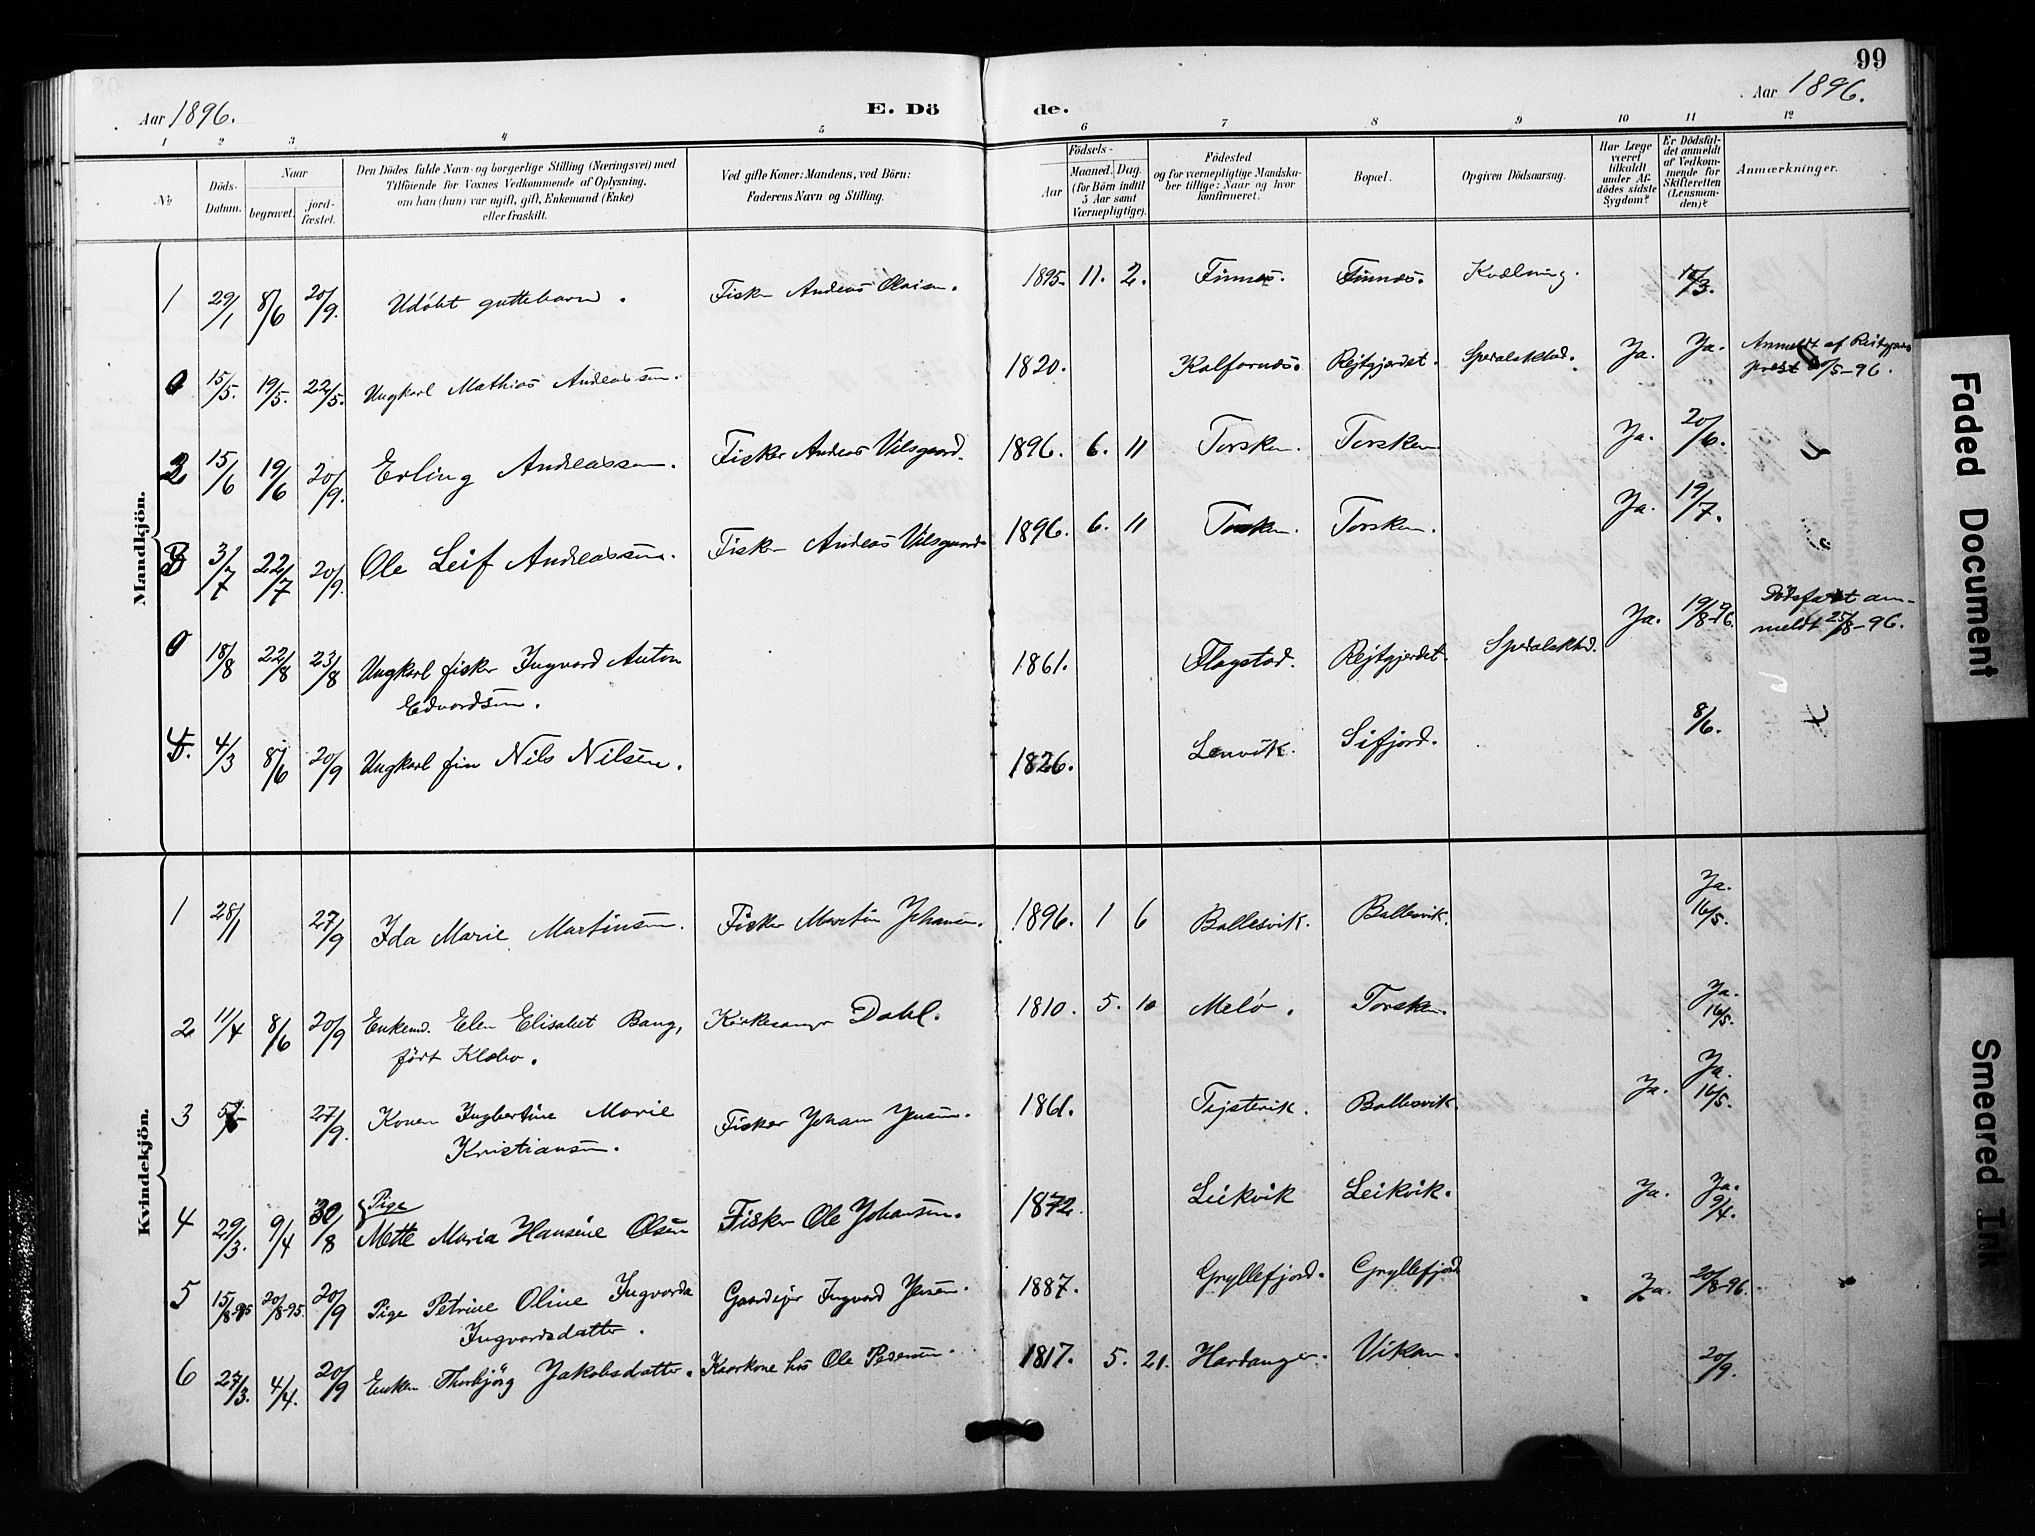 99
Aar 1896.
E. Dö
de.
Aar 1896.
1 2 3 4 5 6 7 8 9 10 11 12
No
Döds-
Datum.
Naar
begravet.
jord-
fæstet.
Den Dödes fulde Navn og borgerlige Stilling (Næringsvei) med
Tilföiende for Voxnes Vedkommende af Oplysning,
om han (hun) var ugift, gift, Enkemand (Enke)
eller fraskilt.
Ved gifte Koner: Mandens, ved Börn:
Faderens Navn og Stilling.
Födsels-
Aar
Maaned. Dag.
(for Börn indtil
5 Aar samt
Værnepligtige).
Födested
og for værnepligtige Mandska-
ber tillige: Naar og hvor
konfirmeret.
Bopæl.
Opgiven Dödsaarsag.
Har Læge
været
tilkaldt
under Af-
dödes sidste
Sygdom?
Er Dödsfal-
det anmeldt
af Vedkom-
mende for
Skifteretten
(Lensman-
den)?
Anmærkninger.
Mandkjön.
1 29/1 8/6 20/9. Udöbt guttebarn. Fisker Andreas Olaisen. 1895. 11. 2. Finnes. Finnæs. Kvælning. 12/3.
0 15/5. 19/5. 22/5. Ungkarl Mathias Andreassen. 1820. Kalfarnæs. Rejtgjerdet. Spedalskhed. Ja. Ja. Anmeldt af Reitgjær
prest 20/5-96.
2 15/6 19/6 20/9. Erling Andreassen. Fisker Andreas Vilsgaard. 1896. 6. 11 Torsken. Torsken Ja. 20/6.
3 3/7 22/7 20/9. Ole Leif Andreassen. Fisker Andreas Vilsgaard 1896. 6. 11 Torsken. Torsken. Ja. 19/7.
0 18/8 22/8 23/8 Ungkarl fisker Ingvard Anton
Edvardsen. 1861. Flagstad. Rejtgjerdet. Spedalskhed. Ja. 19/8-96. Dödsfaldt an-
meldt 25/8-96.
4. 4/3 8/6 20/9 Ungkarl fin Nils Nilsen. 1826. Lenvik. Sifjord. 8/6.
Kvindekjön.
1 28/1 27/9 Ida Marie Martinsen. Fisker Martin Johansen. 1896. 1 6 Ballesvik. Ballesvik. Ja.
16/5.
2 11/4 8/6 20/9 Enkemd. Elen Elisabet Bang,
född Klæbo. Kirkesanger Dahl. 1810. 5. 10 Melö. Torsken. Ja.
16/5.
3 27/9. Konen Ingbertine Marie
Kristiansen. Fisker Johan Jensen. 1861. Tejstevik. Ballesvik. Ja. Ja.
16/5.
4 29/3. 9/4 30/8 Pige
Mette Maria Hansine Olsen Fisker Ole Johansen. 1872. Leikvik Leikvik. Ja. Ja.
9/4.
5 15/8-95 20/8-95. 20/9 Pige Petrine Oline Ingvarda
Ingvardsdatter. Gaardejer Ingvard Jensen. 1887. Gryllefjord. Gryllefjord Ja. 20/8-96.
6 27/3. 4/4. 20/9 Enken Thorbjörg Jakobsdatter. Kaarkone hos Ole Pedersen. 1817. 5. 21. Hardanger. Vikan. 20/9.
Faded Document
Smeared Ink